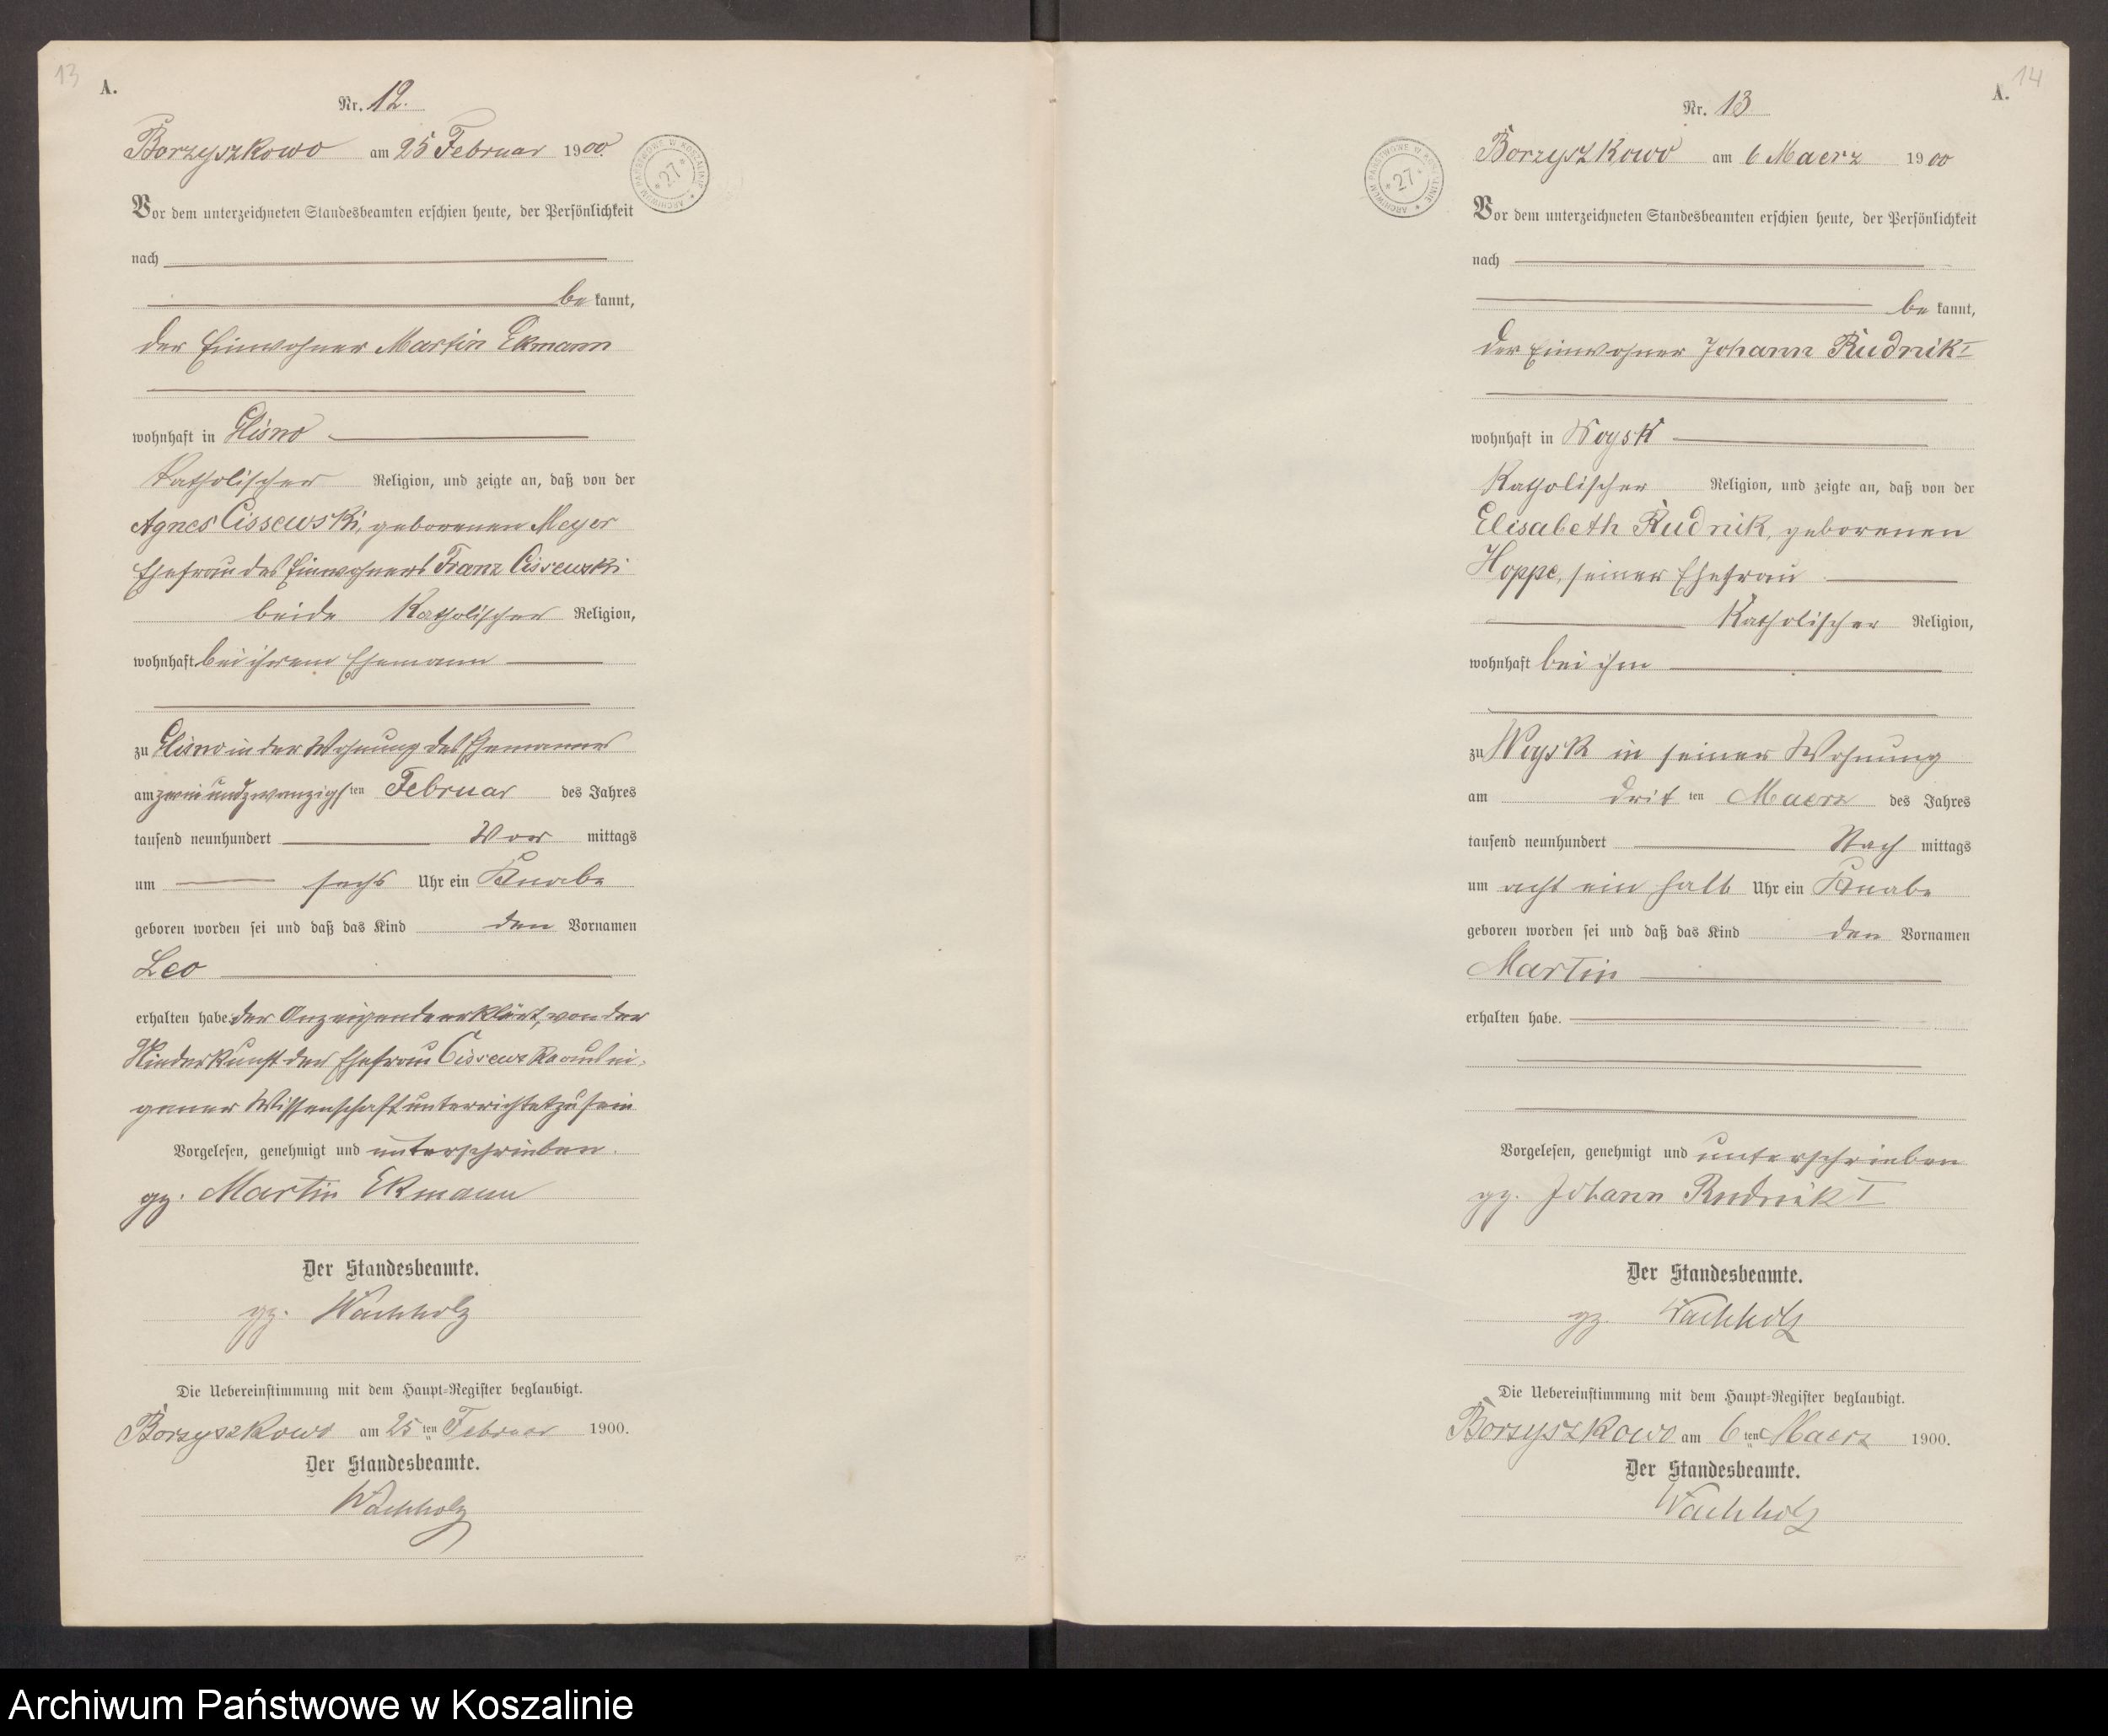 13
A.
Nr. 12.
Borzyszkowo am 25 Februar 1900.
ARCHIWUM PAŃSTWOWE W KOSZALINIE * 27 *
Vor dem unterzeichneten Standesbeamten erschien heute, der Persönlichkeit
nach
be kannt,
der Einwohner Martin Ekmann
wohnhaft in Glisno
katholischer Religion, und zeigte an, daß von der
Agnes Cissewski, geborenen Meyer
Ehefrau des Einwohners Franz Cissewski
beide Katholischer Religion,
wohnhaft bei ihrem Ehemann
zu Glisno in der Wohnung des Ehemannes
am zweiundzwanzigsten Februar des Jahres
tausend neunhundert Vor mittags
um sechs Uhr ein Knabe
geboren worden sei und daß das Kind den Vornamen
Leo
erhalten habe. der Anzeigende erklärt, von der
Niederkunft der Ehefrau aus ei-
gener Wissenschaft unterrichtet zu sein
Vorgelesen, genehmigt und unterschrieben.
gz. Martin Ekmann
Der Standesbeamte.
gz. Wachholz
Die Uebereinstimmung mit dem Haupt-Register beglaubigt.
Borzyszkowo am 25 ten Februar 1900.
Der Standesbeamte.
Wachholz
14
A.
Nr. 13
Borzyszkowo am 6 Maerz 1900
ARCHIWUM PAŃSTWOWE W KOSZALINIE * 27 *
Vor dem unterzeichneten Standesbeamten erschien heute, der Persönlichkeit
nach
be kannt,
der Einwohner Johann Rudnik I
wohnhaft in Woysk
Katholischer Religion, und zeigte an, daß von der
Elisabeth Rudnik, geborenen
Hoppe, seiner Ehefrau
Katholischer Religion,
wohnhaft bei ihm
zu Woysk in seiner Wohnung
am drit ten Maerz des Jahres
tausend neunhundert Nach mittags
um acht ein halb Uhr ein Knabe
geboren worden sei und daß das Kind den Vornamen
Martin
erhalten habe.
Vorgelesen, genehmigt und unterschrieben
gz. Johann Rudnik I
Der Standesbeamte.
gz. Wachholz
Die Uebereinstimmung mit dem Haupt-Register beglaubigt.
Borzyszkowo am 6 ten Maerz 1900.
Der Standesbeamte.
Wachholz
Archiwum Państwowe w Koszalinie